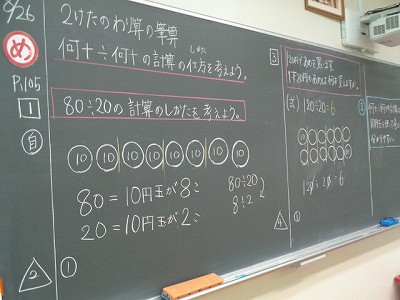 9/26
2けたのわり算の筆算
め
何十÷何十の計算の仕方を考えよう。
しかた
P.105
1
80÷20の計算のしかたを考えよう。
自
10 10 10 10 10 10 10 10
80=10円玉が8こ
20=10円玉が2こ
80÷20
8÷2
2
①
3
(式) 120÷20=6
10 10 10 10 10 10
10 10 10 10 10 10
120÷20=6
4
①